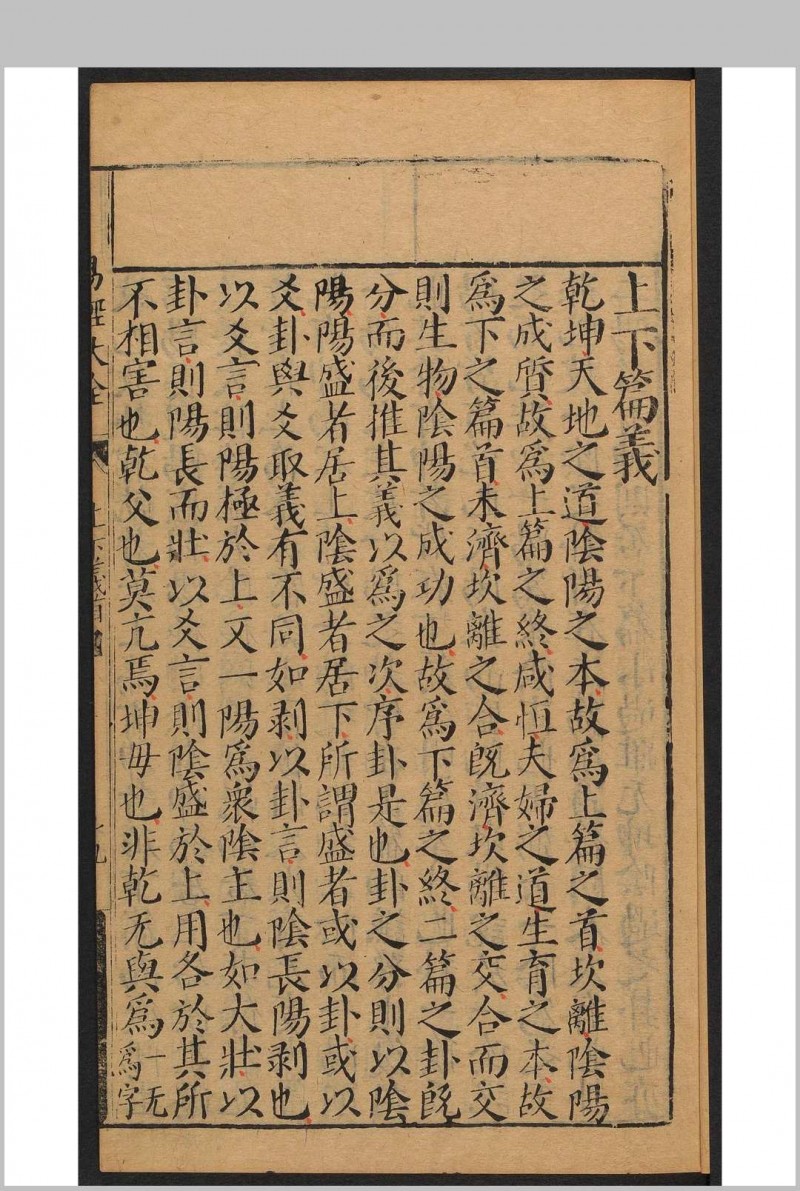 上下篇義
乾坤天地之道陰陽之本故爲上篇之首坎離陰陽
之成質故爲上篇之終咸恒夫婦之道生育之本故
爲下之篇首未濟坎離之合旣濟坎離之交合而交
則生物陰陽之成功也故爲下篇之終二篇之卦旣
分而後推其義以爲之次序卦是也卦之分則以陰
陽陽盛者居上陰盛者居下所謂盛者或以卦或以
爻卦與爻取義有不同如剥以卦言則陰長陽剥也
以爻言則陽極於上又一陽爲衆陰主也如大壯以
卦言則陽長而壯以爻言則陰盛於上用各於其所
不相害也乾父也莫亢焉坤毋也非乾无與爲一无爲字
易經大全 上下篇義